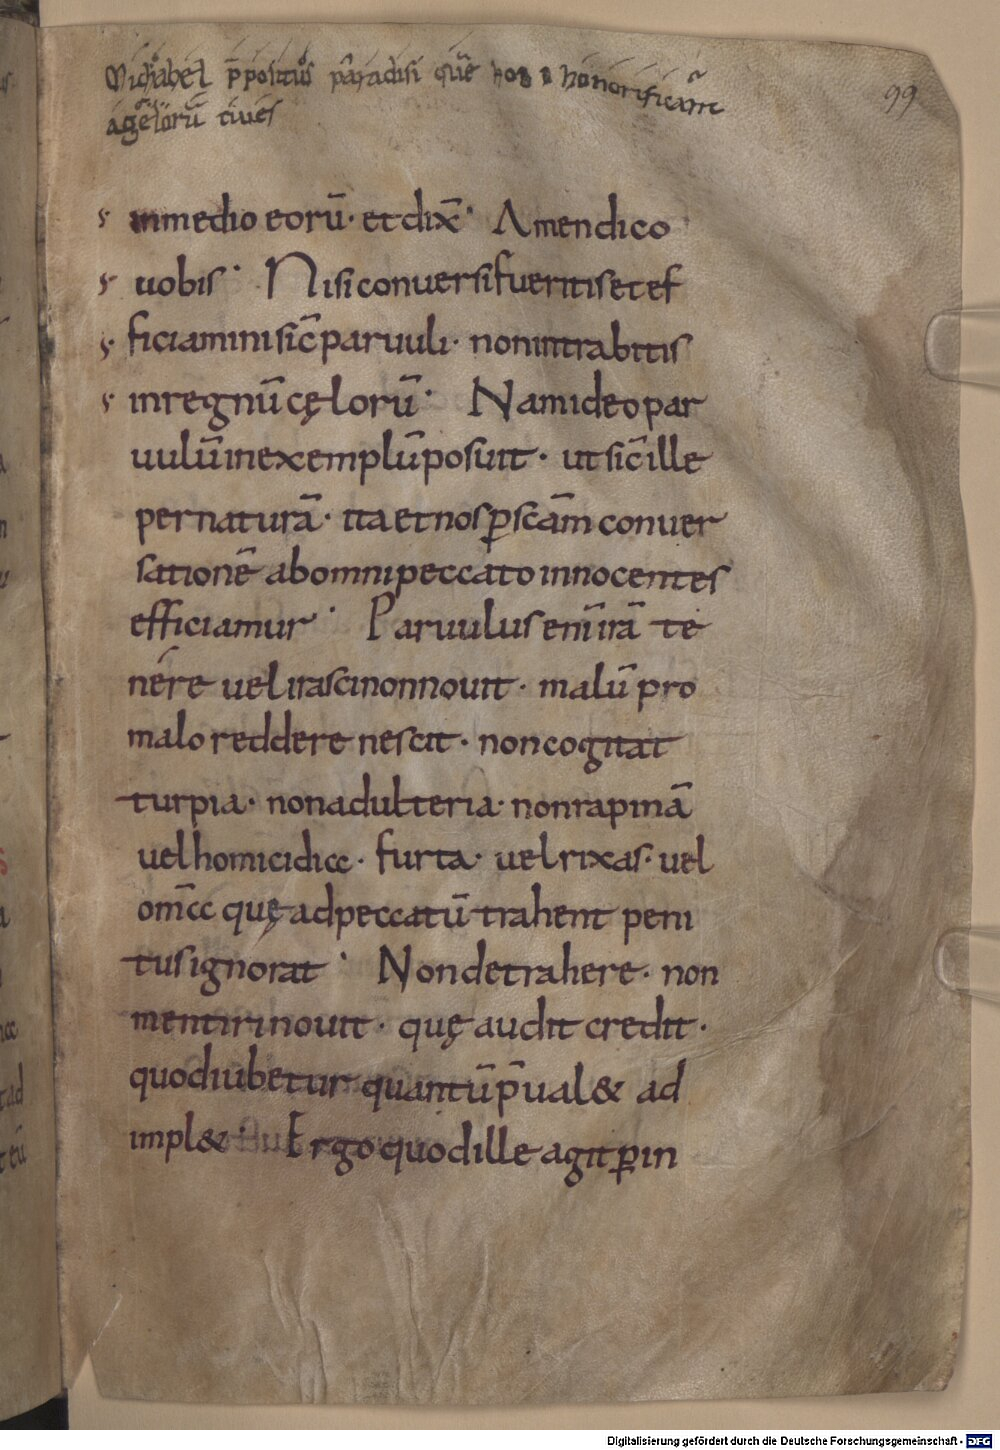 Michahel p̄positus paradisi quē honorificant
angelorū ciues
99
inmedio eorū· et dix̄· Amen dico
uobis· Nisi conuersi fueritis et ef
ficiamini sic̄ paruuli· non intrabitis
in regnū cęlorū· Nam ideo par
uulū in exemplū posuit· ut sic̄ ille
per naturā· ita et nos ꝑ sc̄am conuer
sationē ab omni peccato innocentes
efficiamur· Paruulus enī irā te
nere uel irasci non nouit· malū pro
malo reddere nescit· non cogitat
turpia· non adulteria· non rapinā
uel homicidia· furta· uel rixas· uel
om̄a quę ad peccatū trahent peni
tus ignorat· Non detrahere· non
mentiri nouit· quę audit credit·
quod iubetur quantū p̄ual& ad
impl&· Ergo quod ille agit ꝑ in
Digitalisierung gefördert durch die Deutsche Forschungsgemeinschaft - DFG